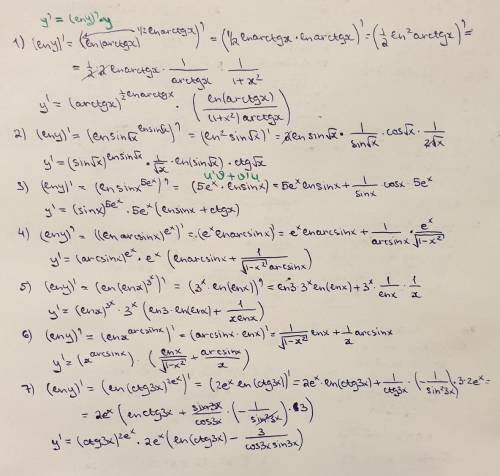 y' = (eny)'·y
1) (eny)' = (en(arctgx)^{1/2 enarctgx})' = (1/2 enarctgx · enarctgx)' = (1/2 en²arctgx)' =
= 1/2 · 2 enarctgx · 1/arctgx · 1/(1+x²)
y' = (arctgx)^{1/2 enarctgx} · (en(arctgx)/((1+x²)arctgx))
2) (eny)' = (ensin√x^{ensin√x})' = (en²sin√x)' = 2ensin√x · 1/sin√x · cos√x · 1/(2√x)
y' = (sin√x)^{ensin√x} · 1/√x · en(sin√x) · ctg√x
u'v + v'u
3) (eny)' = (ensinx^{5e^x})' = (5e^x · ensinx)' = 5e^x ensinx + 1/sinx cosx · 5e^x
y' = (sinx)^{5e^x} · 5e^x (ensinx + ctgx)
4) (eny)' = ((enarcsinx)^{e^x})' = (e^x enarcsinx)' = e^x enarcsinx + 1/arcsinx · e^x/√(1-x²)
y' = (arcsinx)^{e^x} · e^x (enarcsinx + 1/(√(1-x²) arcsinx))
5) (eny)' = (en(enx)^{3^x})' = (3^x · en(enx))' = en3 · 3^x en(enx) + 3^x · 1/enx · 1/x
y' = (enx)^{3^x} · 3^x (en3 · en(enx) + 1/(xenx))
6) (eny)' = (enx^{arcsinx})' = (arcsinx · enx)' = 1/√(1-x²) enx + 1/x arcsinx
y' = (x^{arcsinx}) · (enx/√(1-x²) + arcsinx/x)
7) (eny)' = (en(ctg3x)^{2e^x})' = (2e^x en(ctg3x))' = 2e^x · en(ctg3x) + 1/ctg3x · (-1/sin²3x) · 3 · 2e^x =
= 2e^x (enctg3x + sin3x/cos3x · (-1/sin²3x) · 3)
y' = (ctg3x)^{2e^x} · 2e^x (en(ctg3x) - 3/(cos3xsin3x))